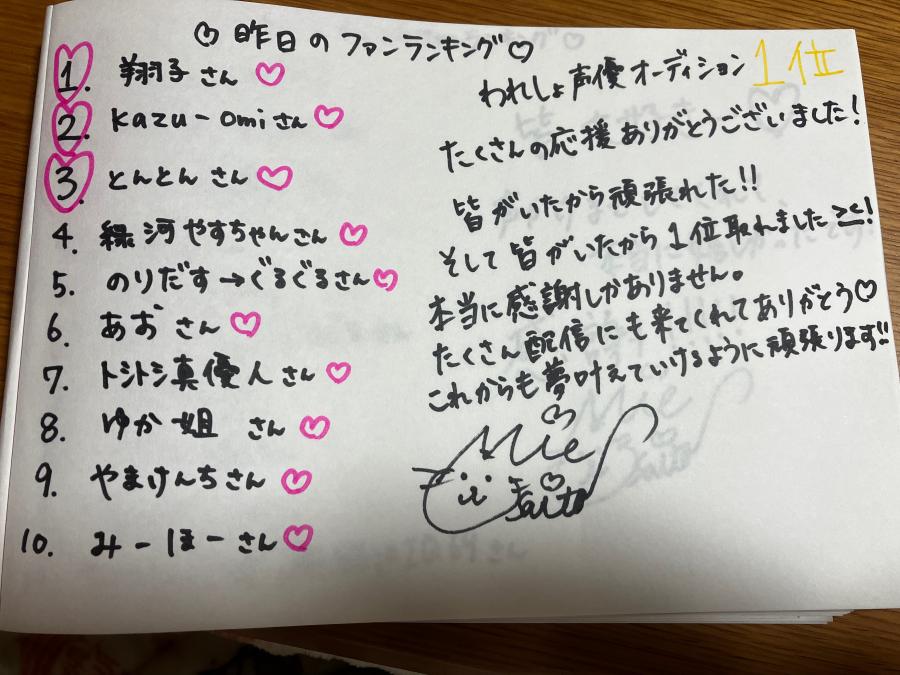 ♡昨日のファンランキング♡
1. 翔子さん♡
2. kazu-omiさん♡
3. とんとんさん♡
4. 緑河やすちゃんさん♡
5. のりだす→ぐるぐるさん♡
6. あおさん♡
7. トシトシ真優人さん♡
8. ゆか姐 さん♡
9. やまけんちさん♡
10. みーほーさん♡
われしょ声優オーディション 1位
たくさんの応援ありがとうございました!
皆がいたから頑張れた!!
そして皆がいたから1位取れました≧≦!
本当に感謝しかありません。
たくさん配信にも来てくれてありがとう♡
これからも夢叶えていけるように頑張ります!!
Mie
Saito